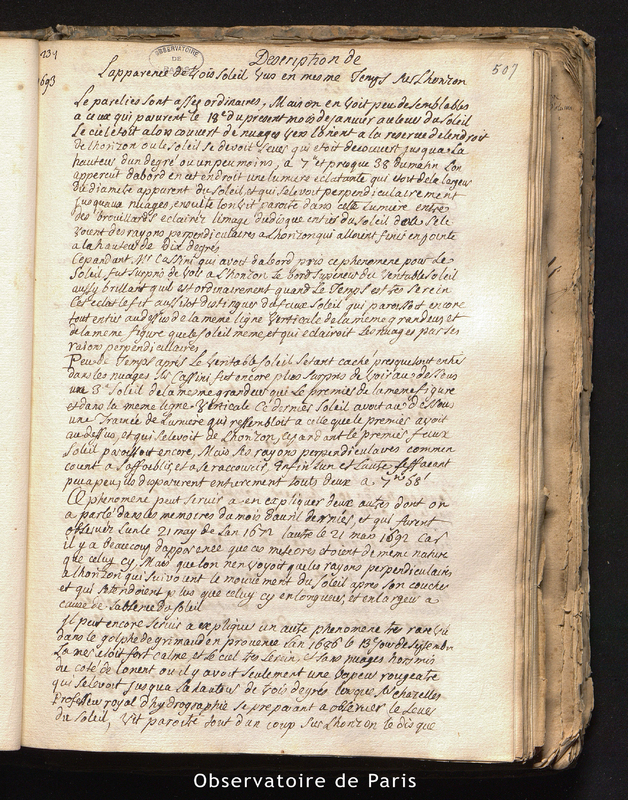 231
1693
OBSERVATOIRE DE PARIS
507
Description de
L'apparence de trois Soleil vus en mesme Temps sur L'horizon
Le parelies sont asses ordinaires, Mais on en voit peu de semblables
a ceux qui parurent le 18e du present mois de Janvier au leuer du Soleil
Le ciel etoit alors couvert de nuages vers l'orient a la reserve de lendroit
de l'horizon ou le Soleil se devoit lever qui etoit decouvert jusqua La
hauteur d'un degré ou un peu moins, a 7h et presque 38' du matin Lon
appercut dabord en cet endroit une lumiere eclatante qui etoit de la largeur
du diametre apparent du Soleil et qui selevoit perpendiculairement
jusquaux nuages, ensuite lon vit paroitre dans cette Lumiere entre
des brouillards eclairez limage du disque entier du Soleil
des rayons perpendiculaires a L'horizon qui alloient finir en pointe
a la hauteur de dix degrés
Cependant Mr Cassini qui avoit dabord pris ce phenomene pour Le
Soleil, fut surpris de voir a L'horizon Le bord superieur du veritable Soleil
aussy brillant quil est ordinairement quand Le Temps est tres serein
Cet eclat le fit aussitot distinguer du faux Soleil qui paroissoit encore
tout entier au dessus de la meme ligne verticale de la meme grandeur et
de la meme figure que le soleil meme, et qui eclairoit les nuages par ses
raions perpendiculaires
Peu de Temps apres Le veritable Soleil setant caché presque tout entier
dans les nuages Mr Cassini fut encore plus surpris de voir au dessous
une 3e Soleil de la mesme grandeur que Le premier de la meme figure
et dans la meme ligne verticale Ce dernier Soleil avoit au dessous
une Trainée de Lumiere qui ressembloit a celle que le premier avoit
au dessus, et qui selevoit de L'horizon, cependant le premier faux
Soleil paroissoit encore, Mais ses rayons perpendiculaires commen
coient a saffoiblir et a se raccourcir, Enfin Lun et Lautre seffacant
peu a peu, ils disparurent entierement touts deux a 7h 58'
Ce phenomene peut servir a en expliquer deux autres dont on
a parlé dans les memoires du mois d'avril dernier, et qui furent
observez Lun le 21 may de Lan 1672 lautre le 21 mars 1692 Car
il y a beaucoup dapparence que ces meteores etoient de meme nature
que celuy cy, Mais que lon nen voyoit que les rayons perpendiculaires
a L'horizon qui suivoient le mouvement du Soleil apres son coucher
et qui setendoient plus que celuy cy en longueur, et en largeur a
cause de du Soleil
Il peut encore servir a expliquer un autre phenomene tres rare vu
dans le golphe de grimaud en provence Lan 1686 le 13e Jour de Septembre
La mer etoit fort calme et Le ciel tres serein et sans nuages hormis
du coté de Lorient ou il y avoit seulement une vapeur rougeatre
qui selevoit jusqua La hauteur de trois degrez lorsque Mr Chazelles
Professeur royal d'hydrographie se preparant a observer le Leuer
du Soleil, vit paroitre tout d'un coup sur L'horizon le disque
Observatoire de Paris